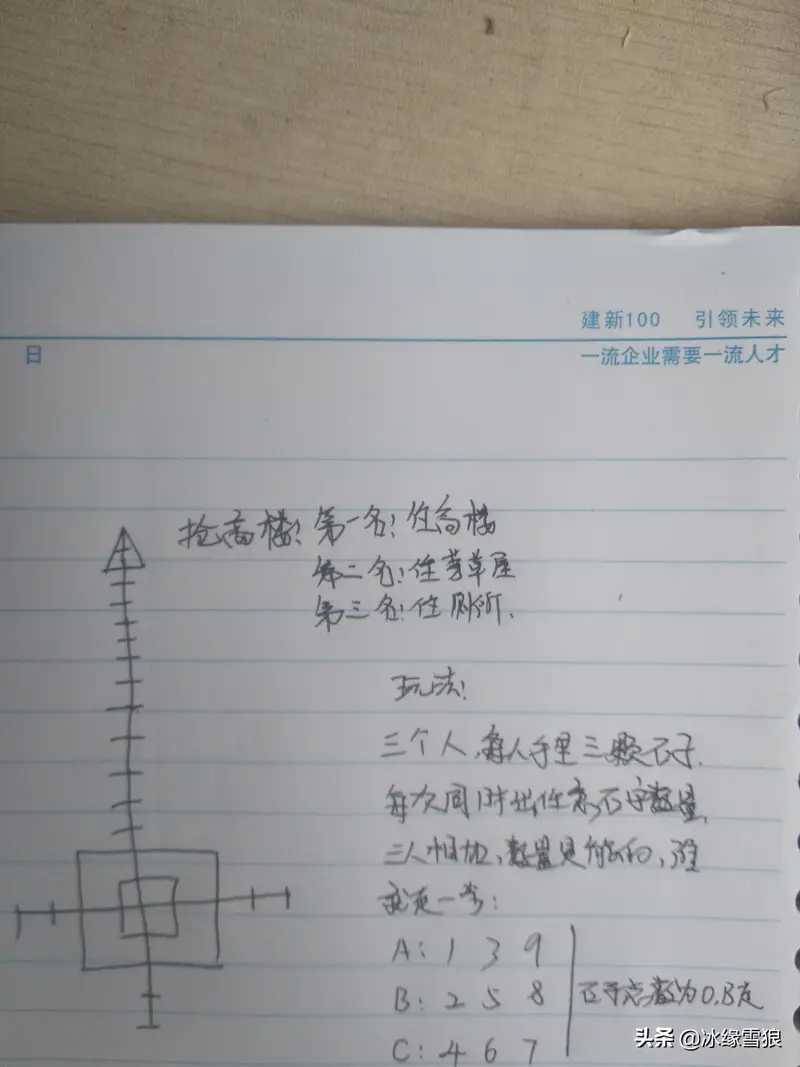 建新100 引领未来
日
一流企业需要一流人才
抢高楼：第一名：住高楼
第二名：住茅草屋
第三名：住厕所.
玩法：
三个人，每人手里三颗石子.
每次同时出任意石子数量,
三人相加，数量是谁的，谁
就走一步：
A: 1 3 9
B: 2 5 8
石子总数为0.B走
C: 4 6 7
头条 @冰缘雪狼